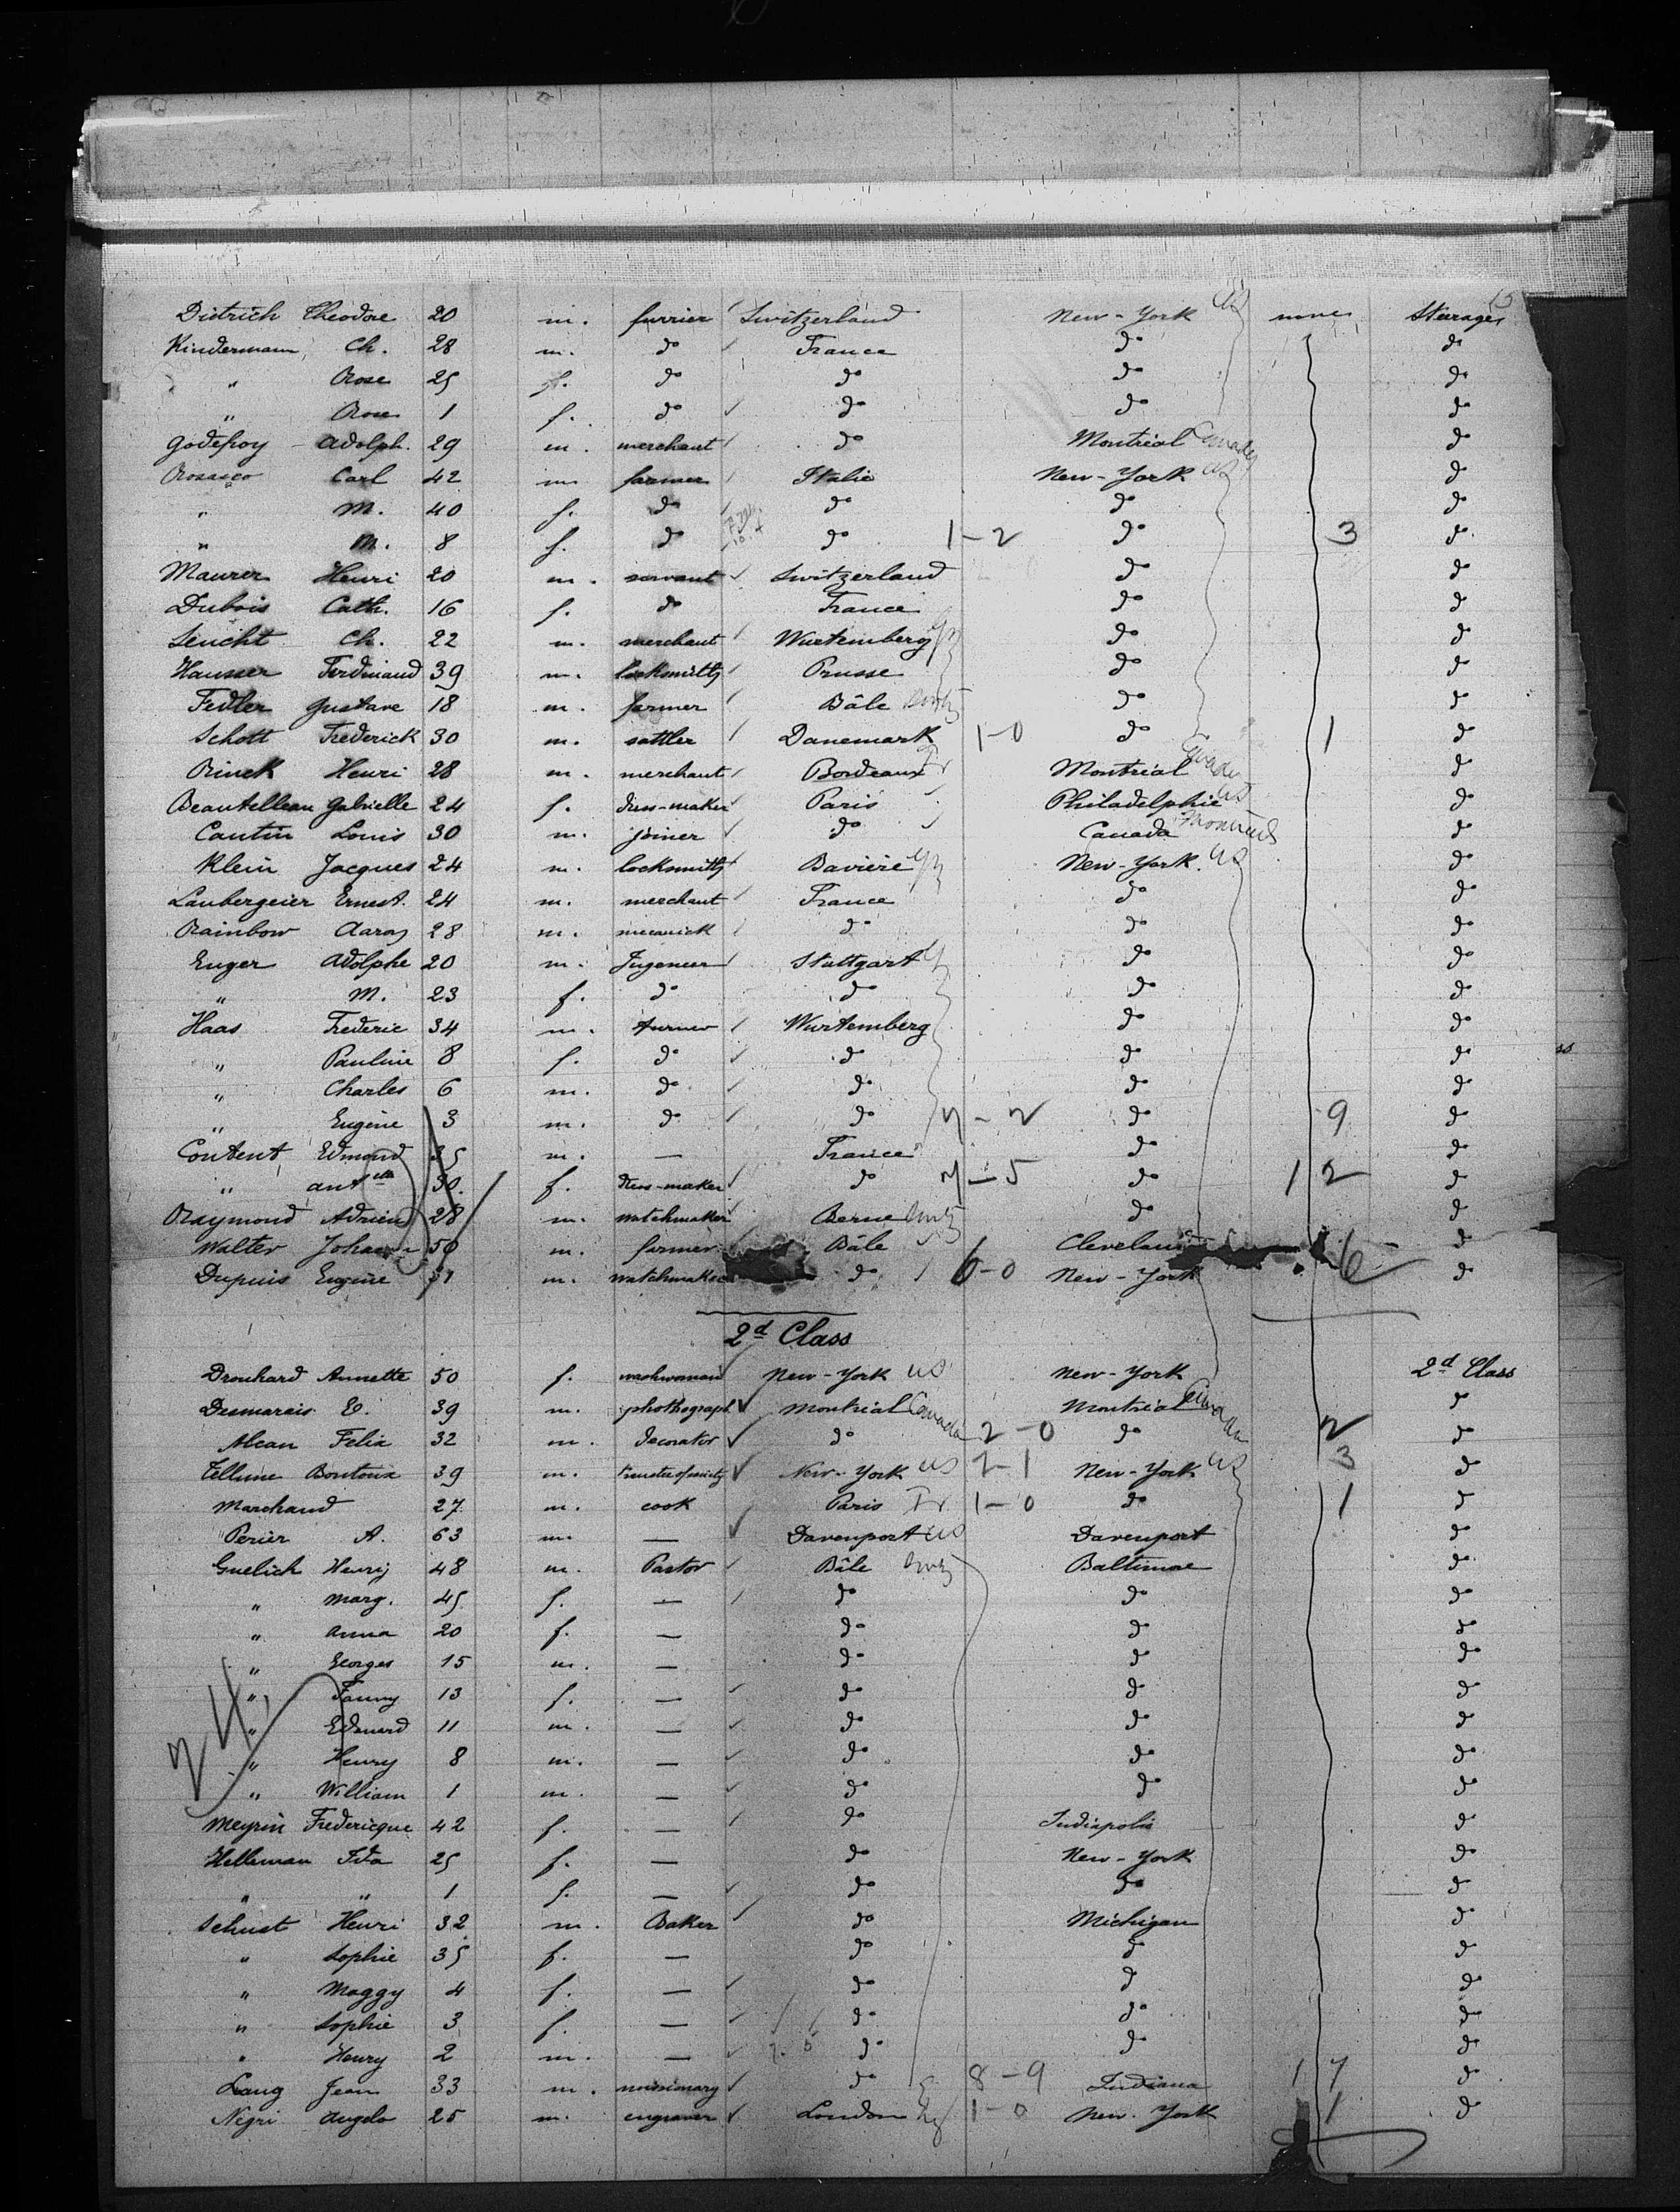 15
Dietrich Theodore 20 m. furrier Switzerland New-York US none Steerage
Kindermann Ch. 28 m. do France do do
" Rose 25 f. do do do do
" Rose 1 f. do do do do
Godefroy Adolph. 29 m. merchant do Montréal Canada do
Rosasco Carl 42 m. farmer Italie New-York US do
" M. 40 f. do do do do
" M. 8 f. do do 1-2 do 3 do
Maurer Henri 20 m. servant Switzerland do do
Dubois Cath. 16 f. do France do do
Leucht Ch. 22 m. merchant Wurtemberg do do
Hausser Ferdinand 39 m. locksmith Prusse do do
Fedler Gustave 18 m. farmer Bâle do do
Schott Frederick 30 m. sattler Danemark 1-0 do 1 do
Rinck Henri 28 m. merchant Bordeaux Fr Montréal Canada do
Beautelleau Gabrielle 24 f. dress-maker Paris Philadelphie US do
Cantin Louis 30 m. joiner do Canada Montreal do
Klein Jacques 24 m. locksmith Bavière New-York. US do
Laubergeier Ernest. 24 m. merchant France do do
Rainbow Aaron 28 m. mecanick do do do
Enger Adolphe 20 m. Ingeneer Stuttgart do do
" M. 23 f. do do do do
Haas Frederic 34 m. turner Wurtemberg do do
" Pauline 8 f. do do do do
" Charles 6 m. do do do do
" Eugène 3 m. do do 7-2 do 9 do
Content Edmond 35 m. — France do do
" Antte 30. f. dress-maker do 7-5 do 12 do
Raymond Adrien 28 m. watchmaker Berne do do
Walter Johann 50 m. farmer Bâle Cleveland do
Dupuis Eugène 31 m. watchmaker do 6-0 New-York 6 do
2d Class
Drouhard Annette 50 f. washwoman New-York US New-York 2d Class
Desmarais E. 39 m. phothograph Montréal Canada Montréal Canada do
Alcan Felix 32 m. decorator do 2-0 do 2 do
Tellune Boutoux 39 m. New-York US 2-1 New-York US 3 do
Marchand 27 m. cook Paris Fr 1-0 do 1 do
Perier A. 63 m. — Davenport US Davenport do
Guelich Henrij 48 m. Pastor Bâle Baltimore do
" Marg. 45 f. — do do do
" Anna 20 f. — do do do
" Georges 15 m. — do do do
" Fanny 13 f. — do do do
" Edouard 11 m. — do do do
24
" Henry 8 m. — do do do
" William 1 m. — do do do
Meyrin Fredericque 42 f. — do Indiapolis do
Helleman Ida 25 f. — do New-York do
" " 1 f. — do do do
Schust Henri 32 m. Baker do Michigan do
" Sophie 35 f. — do do do
" Maggy 4 f. — do do do
" Sophie 3 f. — do do do
" Henry 2 m. — do do do
Laug Jean 33 m. missionary do 8-9 Indiana 17 do
Negri Angelo 25 m. engraver London Eng 1-0 New-York 1 do